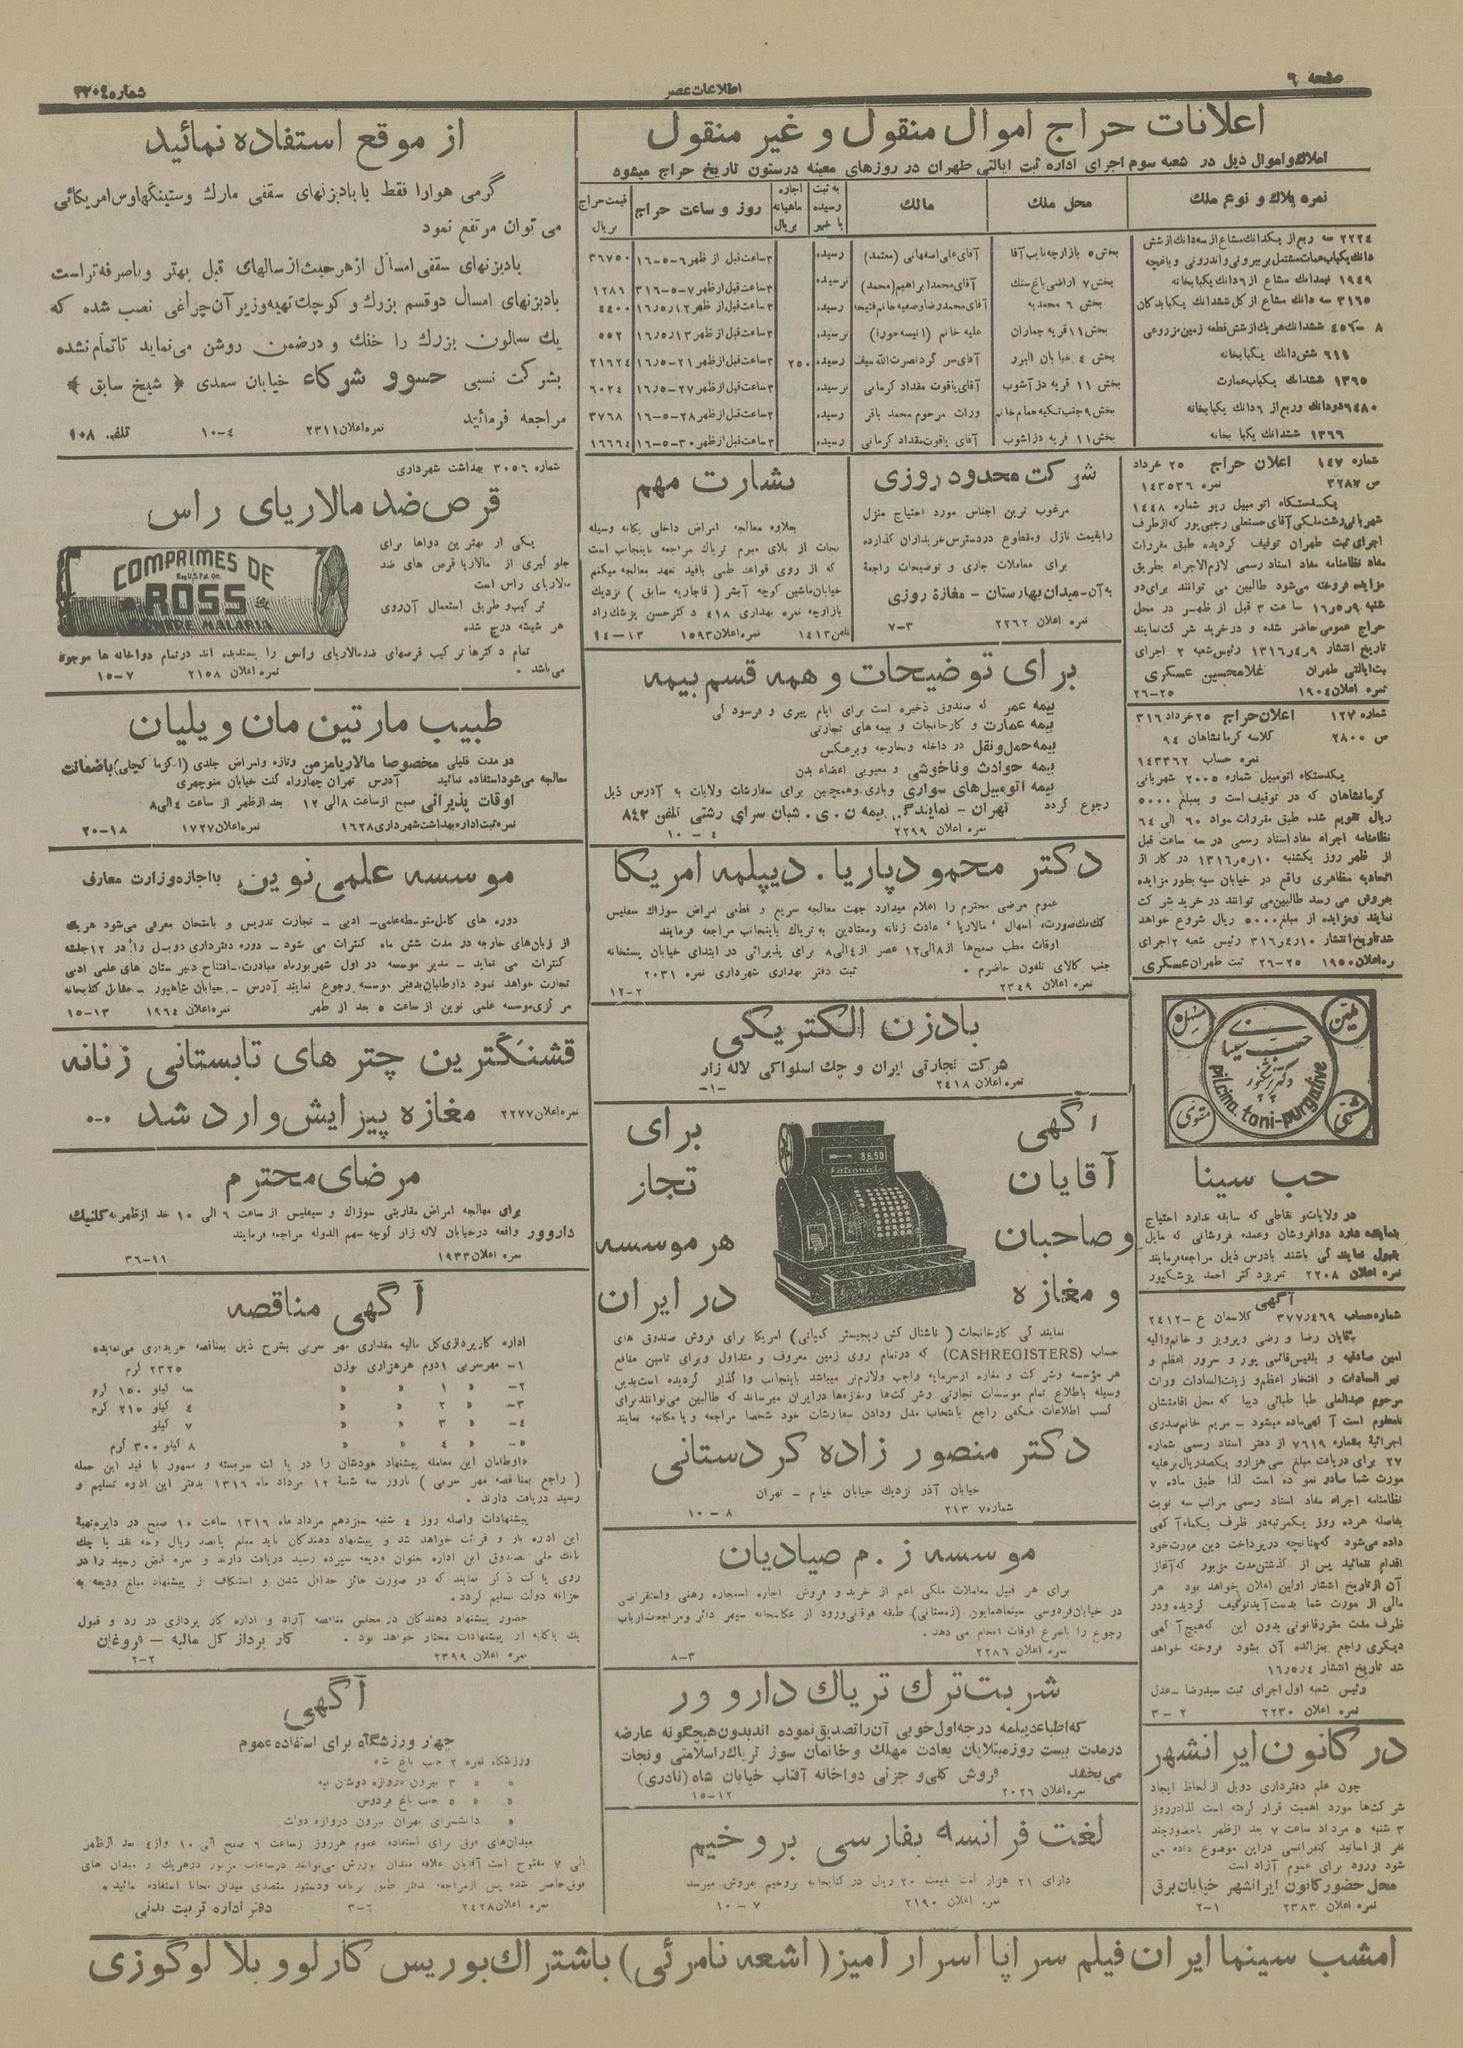 صفحه ۶
اطلاعات عصر
شماره ۳۲۰۴
اعلانات حراج اموال منقول و غیر منقول
املاك و اموال ذیل در شعبه سوم اجرای اداره ثبت ایالتی طهران در روزهای معینه در ستون تاریخ حراج میشود
نمره پلاك و نوع ملك
محل ملك
مالك
به ثبت رسیده یا خیر
اجاره ماهیانه بریال
روز و ساعت حراج
قیمت حراج بریال
۲۲۲۴ سه ربع از یکدانك مشاع از سه دانك از شش دانك یکباب عمارت مشتمل بر بیرونی و اندرونی و باغچه
بخش ۵ بازارچه نایب آقا
آقای علی اصفهانی (معتمد)
رسیده
۳ ساعت قبل از ظهر ۶-۵-۱۶
۳۶۷۵۰
۱۹۴۹ نیمدانك مشاع از ۶ دانك یکبابخانه
بخش ۷ اراضی باغ سنك
آقای محمد ابراهیم (محمد)
نرسیده
۳ ساعت قبل از ظهر ۷-۵-۳۱۶
۱۲۸۶
۳۱۶۵ سه دانك مشاع از کل ششدانك یکباب دکان
بخش ۶ محمدیه
آقای محمد رضا و صفیه خانم فتیحه
رسیده
۳ ساعت قبل از ظهر ۱۶٫۵٫۱۲
۴۴۰۰
۸-۴۵۶ ششدانك هریك از شش قطعه زمین مزروعی
بخش ۱۱ قریه جماران
علیه خانم (انیسه حورا)
نرسیده
۳ ساعت قبل از ظهر ۱۶٫۵٫۱۳
۵۵۲
۶۱۹ شش دانك یکبابخانه
بخش ۴ خیابان البرز
آقای سر گرد نصرت الله سیف
رسیده
۲۵۰
۳ ساعت قبل از ظهر ۲۱-۱۶٫۵
۲۱۶۲۴
۱۳۶۵ ششدانك یکباب عمارت
بخش ۱۱ قریه دزآشوب
آقای یاقوت مقداد کرمانی
نرسیده
۳ ساعت قبل از ظهر ۲۷-۱۶٫۵
۶۰۲۴
۹۴۸۰ دودانك و ربع از ۶ دانك یکبابخانه
بخش ۹ جنب تکیه حمام خانم
وراث مرحوم محمد باقر
رسیده
۳ ساعت قبل از ظهر ۲۸-۵-۱۶
۳۷۶۸
۱۳۶۶ ششدانك یکبابخانه
بخش ۱۱ قریه دزاشوب
آقای یاقوت مقداد کرمانی
رسیده
۳ ساعت قبل از ظهر ۳۰-۵-۱۶
۱۶۶۶۴
شماره ۱۴۷ اعلان حراج ۲۵ خرداد
ص ۳۲۸۷ نمره ۱۴۳۵۳۶
یکدستگاه اتومبیل ریو شماره ۱۴۴۸
شهربانی رشت ملکی آقای حسنعلی رجبی پور که از طرف
اجرای ثبت طهران توقیف گردیده طبق مقررات
مفاد نظامنامه مفاد اسناد رسمی لازم الاجراء بطریق
مزایده فروخته می شود طالبین می توانند برای دو
شنبه ۱۶٫۵٫۹ ساعت ۳ قبل از ظهر در محل
حراج عمومی حاضر شده و در خرید شرکت نمایند
تاریخ انتشار ۱۳۱۶٫۴٫۹ رئیس شعبه ۲ اجرای
ثبت ایالتی طهران غلامحسین عسکری
نمره اعلان ۱۹۰۴ ۲۵-۲۶
شماره ۱۲۷ اعلان حراج ۲۵ خرداد ۳۱۶
ص ۲۸۰۰ کلاسه کرمانشاهان ۹۴
نمره حساب ۱۴۳۳۶۲
یکدستگاه اتومبیل شماره ۲۰۰۵ شهربانی
کرمانشاهان که در توقیف است و بمبلغ ۵۰۰۰
ریال تقویم شده طبق مقررات مواد ۶۰ الی ۶۴
نظامنامه اجراء مفاد اسناد رسمی در سه ساعت قبل
از ظهر روز یکشنبه ۱۳۱۶٫۵٫۱۰ در کار از
اتحادیه مظاهری واقع در خیابان سپه بطور مزایده
بفروش می رسد طالبین می توانند در خرید شرکت
نمایند و مزایده از مبلغ ۵۰۰۰ ریال شروع خواهد
شد تاریخ انتشار ۳۱۶٫۴٫۱۰ رئیس شعبه ۲ اجرای
ره اعلان ۱۹۵۰ ۲۵-۲۶ ثبت طهران عسکری
ملین
مسهل
حب سینا
دکتر پزشکپور
pilcina toni-purgative
مشتهی
مقوی
حب سینا
در ولایات و نقاطی که سابقه ندارد احتیاج
بنماینده دارد دوافروشان و عمده فروشانی که مایل
بقبول نمایندگی باشند بآدرس ذیل مراجعه فرمایند
نمره اعلان ۲۲۰۸ تبریز دکتر احمد پزشکپور
آگهی
شماره حساب ۳۷۷٫۴۶۹ کلاسمان ع-۲۴۱۲
آقایان رضا و رضی و پرویز و خانم والیه
امین صادقیه و بلقیس قائمی پور و سرور اعظم و
نیر السادات و افتخار اعظم و زینت السادات وراث
مرحوم عبدالعلی طبا طبائی دیبا که محل اقامتشان
نامعلوم است آگهی داده میشود - مریم خانم صدری
اجرائیه بشماره ۷۶۱۹ از دفتر اسناد رسمی شماره
۲۷ برای دریافت مبلغ سی هزار و یکصد ریال بر علیه
مورث شما صادر نمو ده است لذا طبق ماده ۷
نظامنامه اجراء مفاد اسناد رسمی مراتب سه نوبت
بفاصله هر ده روز یکمرتبه در ظرف یکماه آگهی
داده می‌شود که چنانچه در پرداخت دین مورث خود
اقدام ننمائید پس از گذشتن مدت مزبور که آغاز
آن از تاریخ انتشار اولین اعلان خواهد بود هر
مالی از مورث شما بدست آید توقیف گردیده و در
ظرف مدت مقرر قانونی بدون این که هیچ آگهی
دیگری راجع بمزائده آن بشود فروخته خواهد
شد تاریخ انتشار ۱۶٫۵٫۴
رئیس شعبه اول اجرای ثبت سیدرضا - عدل
نمره اعلان ۲۲۳۰ ۲-۳
در کانون ایرانشهر
چون علم دفترداری دوبل از لحاظ ایجاد
شرکت‌ها مورد اهمیت قرار گرفته است لذا در روز
۳ شنبه ۵ مرداد ساعت ۷ بعد از ظهر با حضور چند
نفر از اساتید کنفرانسی در این موضوع داده می
شود ورود برای عموم آزاد است
محل حضور کانون ایرانشهر خیابان برق
نمره اعلان ۲۳۸۳ ۲-۱
شرکت محدود روزی
مرغوب ترین اجناس مورد احتیاج منزل
را بقیمت نازل و مقطوع در دسترس خریداران گذارده
برای معاملات جاری و توضیحات راجعه
به آن - میدان بهارستان - مغازه روزی
نمره اعلان ۲۲۶۲ ۳-۷
بشارت مهم
بعلاوه معالجه امراض داخلی یگانه وسیله
نجات از بلای مبرم تریاك مراجعه باینجانب است
که از روی قواعد طبی با قید تعهد معالجه میکنم
خیابان ماشین کوچه آبشر (قاجاریه سابق) نزدیك
بازارچه نمره بهداری ۴۱۸ دکتر حسن پزشك زاد
تلفن ۱۴۱۳ نمره اعلان ۱۵۹۳ ۱۳-۱۴
برای توضیحات و همه قسم بیمه
بیمه عمر که صندوق ذخیره است برای ایام پیری و فرسودگی
بیمه عمارت و کارخانجات و بیمه های تجارتی
بیمه حمل و نقل در داخله و بخارجه و برعکس
بیمه حوادث و ناخوشی و معیوبی اعضاء بدن
بیمه اتومبیل‌های سواری و باری و همچنین برای سفارشات ولایات به آدرس ذیل
رجوع گردد تهران - نمایندگی بیمه ن . ی . شبان سرای رشتی تلفن ۸۴۳
نمره اعلان ۲۲۹۹ ۴-۱۰
دکتر محمود پاریا . دیپلمه امریکا
عموم مرضی محترم را اعلام میدارد جهت معالجه سریع و قطعی امراض سوزاك سفلیس
كك مك صورت، اسهال، مالاریا، عادت زنانه و معتادین به تریاك باینجانب مراجعه فرمایند
اوقات مطب صبح‌ها از ۸ الی ۱۲ عصر از ۴ الی ۸ برای پذیرائی در ابتدای خیابان پستخانه
جنب کالای تلفون حاضرم . ثبت دفتر بهداری شهرداری نمره ۲۰۳۱
نمره اعلان ۲۳۴۹ ۲-۱۲
بادزن الکتریکی
شرکت تجارتی ایران و چك اسلواکی لاله زار
نمره اعلان ۲۴۱۸ -۱-
آگهی
آقایان
و صاحبان
و مغازه
برای
تجار
هر موسسه
در ایران
8650
National
نمایندگی کارخانجات (ناشنال کش ریجیستر کمپانی) امریکا برای فروش صندوق های
حساب (CASHREGISTERS) که در تمام روی زمین معروف و متداول و برای تامین منافع
هر مؤسسه و شرکت و مغازه از سرمایه واجب و لازم تر میباشد باینجانب واگذار گردیده است بدین
وسیله باطلاع تمام موسسات تجارتی و شرکت‌ها و مغازه‌ها در ایران میرساند که طالبین می‌توانند برای
کسب اطلاعات مکفی راجع بانتخاب مدل و دادن سفارشات خود شخصا مراجعه و یا مکاتبه نمایند
دکتر منصور زاده کردستانی
خیابان آذر نزدیك خیابان خیام - تهران
شماره ۲۱۳۷ ۸-۱۰
موسسه ز . م صیادیان
برای هر قبیل معاملات ملکی اعم از خرید و فروش اجاره استجاره رهنی و استقراضی
در خیابان فردوسی سینما همایون (زمستانی) طبقه فوقانی ورود از عکاسخانه سپهر دائر و مراجعات ارباب
رجوع را باسرع اوقات انجام می دهد.
نمره اعلان ۲۲۸۶ ۳-۸
شربت ترك تریاك دارو ور
که اطباء دیپلمه درجه اول خوبی آن را تصدیق نموده اند بدون هیچگونه عارضه
در مدت بیست روز مبتلایان بعادت مهلك و خانمان سوز تریاك را سلامتی و نجات
می بخشد فروش کلی و جزئی دواخانه آفتاب خیابان شاه (نادری)
نمره اعلان ۲۰۲۶ ۱۲-۱۵
لغت فرانسه بفارسی بروخیم
دارای ۲۱ هزار لغت قیمت ۲۰ ریال در کتابخانه بروخیم بفروش میرسد
نمره اعلان ۲۱۹۰ ۷-۱۰
از موقع استفاده نمائید
گرمی هوا را فقط با بادبزنهای سقفی مارك وستینگهاوس امریکائی
می توان مرتفع نمود
بادبزنهای سقفی امسال از هر حیث از سالهای قبل بهتر و با صرفه تر است
بادبزنهای امسال دو قسم بزرك و کوچك تهیه و زیر آن چراغی نصب شده که
یك سالون بزرك را خنك و در ضمن روشن می نماید تا تمام نشده
بشرکت نسبی حسو و شرکاء خیابان سعدی « شیخ سابق »
مراجعه فرمائید نمره اعلان ۲۳۱۱ ۴-۱۰ تلفن ۹۰۸
شماره ۳۰۵۶ بهداشت شهرداری
قرص ضد مالاریای راس
یکی از بهترین دواها برای
جلوگیری از مالاریا قرص های ضد
مالاریای راس است
ترکیب و طریق استعمال آن روی
هر شیشه درج شده
COMPRIMES DE
ROSS
CONTRE MALARIA
تمام دکترها ترکیب قرصهای ضد مالاریای راس را پسندیده اند در تمام دواخانه ها موجود
می باشد . نمره اعلان ۲۱۵۸ ۷-۱۵
طبیب مارتین مان ویلیان
در مدت قلیلی مخصوصا مالاریا مزمن و تازه و امراض جلدی (اگزما کچلی) با ضمانت
معالجه می‌شود استفاده نمائید آدرس تهران چهارراه کنت خیابان منوچهری
اوقات پذیرائی صبح از ساعت ۸ الی ۱۲ بعد از ظهر از ساعت ۴ الی ۸
نمره ثبت اداره بهداشت شهرداری ۱۶۲۸ نمره اعلان ۱۷۲۷ ۱۸-۲۰
موسسه علمی نوین با اجازه وزارت معارف
دوره های کامل متوسطه علمی - ادبی - تجارت تدریس و بامتحان معرفی می‌شود هریك
از زبان‌های خارجه در مدت شش ماه کنترات می شود - دوره دفترداری دوبل را در ۱۲ جلسه
کنترات می نماید - مدیر موسسه در اول شهریورماه مبادرت بافتتاح دبیرستان های علمی ادبی
تجارت خواهد نمود داوطلبان بدفتر موسسه رجوع نمایند آدرس - خیابان شاهپور - مقابل کتابخانه
مرکزی موسسه علمی نوین از ساعت ۵ بعد از ظهر نمره اعلان ۱۹۶۴ ۱۳-۱۵
قشنگترین چتر های تابستانی زنانه
مغازه پیرایش وارد شد ... نمره اعلان ۲۲۷۷
مرضای محترم
برای معالجه امراض مقاربتی سوزاك و سیفلیس از ساعت ۶ الی ۱۰ بعد از ظهر به کلنیك
داروور واقعه در خیابان لاله زار کوچه سهم الدوله مراجعه فرمایند
نمره اعلان ۱۹۳۳ ۱۱-۳۶
آگهی مناقصه
اداره کارپردازی کل مالیه مقداری مهر سربی بشرح ذیل بمناقصه خریداری می‌نماید
۱- مهر سربی ۱ دوم هر هزاری بوزن ۲۳۲۵ گرم
۲- « ۱ « « سه کیلو ۱۵۰ گرم
۳- « ۲ « « ۴ کیلو ۲۱۵ گرم
۴- « ۳ « « ۷ کیلو
۵- « ۴ « « ۸ کیلو ۳۰۰ گرم
داوطلبان این معامله پیشنهاد خودشان را در پاکت سربسته و ممهور با قید این جمله
( راجع بمناقصه مهر سربی ) تا روز سه شنبه ۱۲ مرداد ماه ۱۳۱۶ بدفتر این اداره تسلیم و
رسید دریافت دارند .
پیشنهادات واصله روز ۴ شنبه سیزدهم مرداد ماه ۱۳۱۶ ساعت ۱۰ صبح در دایره تهیه
این اداره باز و قرائت خواهد شد و پیشنهاد دهندگان باید مبلغ پانصد ریال وجه نقد یا چك
بانك ملی بصندوق این اداره بعنوان ودیعه سپرده رسید دریافت دارند و نمره قبض رسید را در
روی پاکت ذکر نمایند که در صورت حائز حداقل شدن و استنکاف از پیشنهاد مبلغ ودیعه به
خزانه دولت تسلیم گردد.
حضور پیشنهاد دهندگان در مجلس مناقصه آزاد و اداره کارپردازی در رد و قبول
یك یا کلیه از پیشنهادات مختار خواهد بود . کارپرداز کل مالیه - فروغان
نمره اعلان ۲۳۹۹ ۲-۲
آگهی
چهار ورزشگاه برای استفاده عموم
ورزشگاه نمره ۲ جنب باغ شاه
« « ۳ بیرون دروازه دوشن تپه
« « ۵ جنب باغ فردوس
« دانشسرای تهران بیرون دروازه دولت
میدان‌های فوق برای استفاده عموم هرروز از ساعت ۶ صبح الی ۱۰ و از ۴ بعد از ظهر
الی ۷ مفتوح است آقایان علاقه مندان بورزش می‌توانند در ساعات مزبور در هریك از میدان های
فوق حاضر شده پس از مراجعه بدفتر طبق برنامه و دستور متصدی میدان مجانا استفاده نمائید .
نمره اعلان ۲۴۲۸ ۲-۳ دفتر اداره تربیت بدنی
امشب سینما ایران فیلم سراپا اسرار آمیز ( اشعه نامرئی ) باشتراك بوریس کارلوو بلا لوگوزی